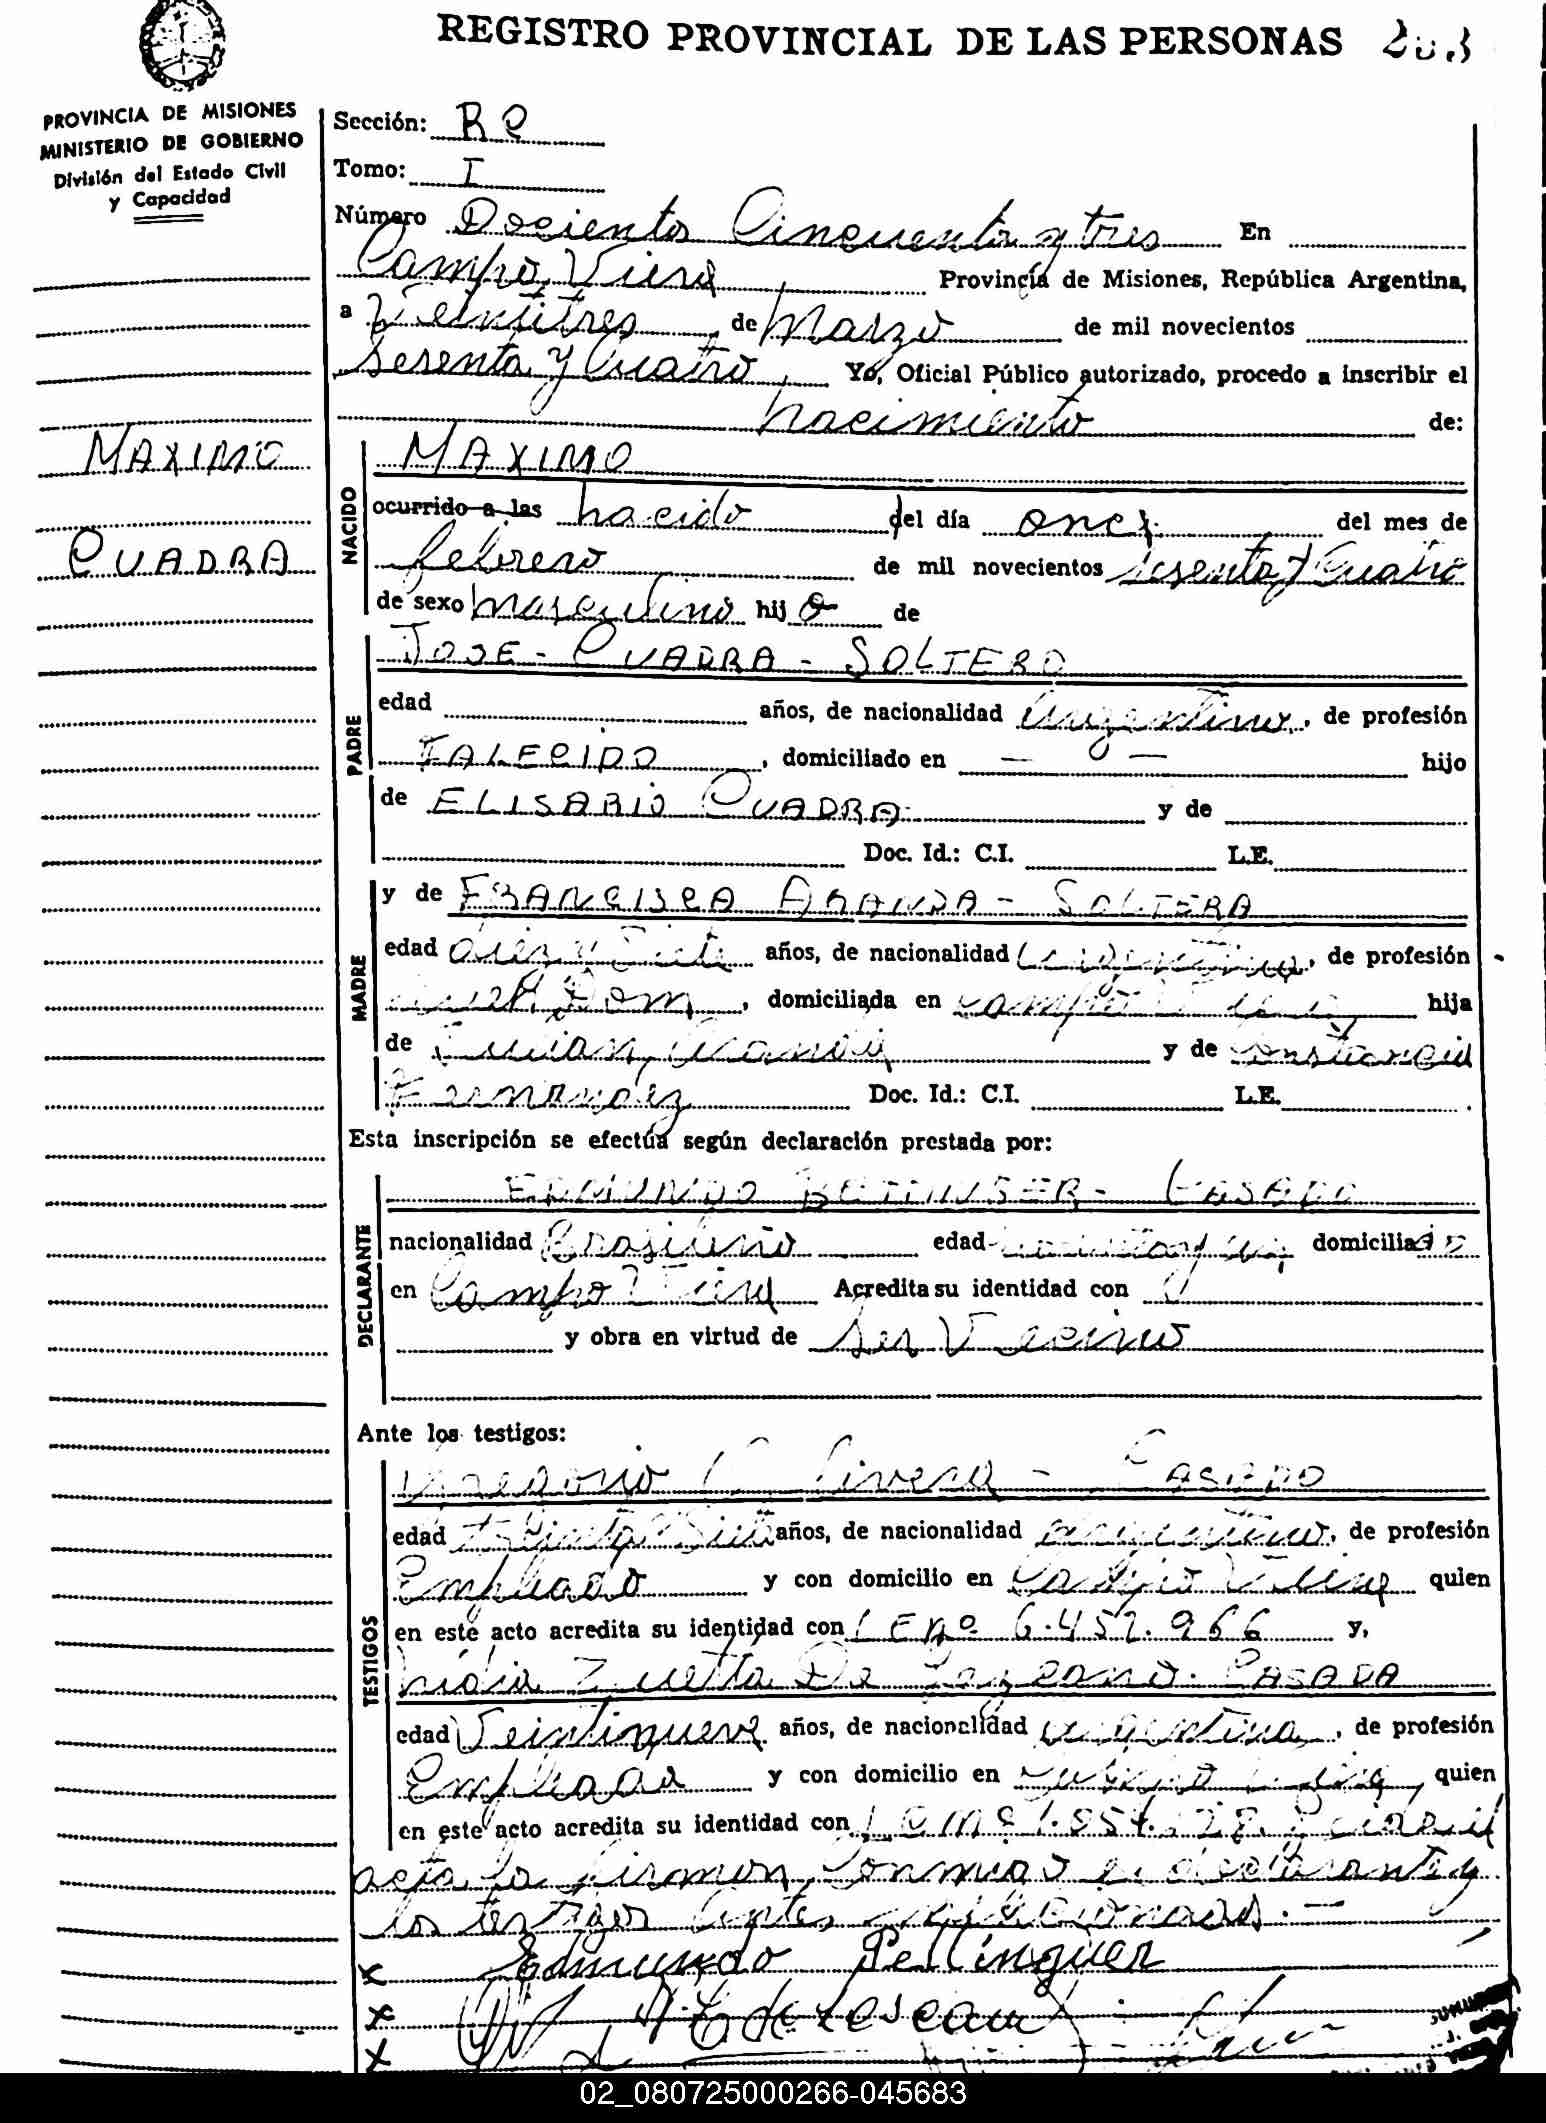 REGISTRO PROVINCIAL DE LAS PERSONAS
PROVINCIA DE MISIONES
MINISTERIO DE GOBIERNO
División del Estado Civil
y Capacidad
MAXIMO
CUADRA
Sección: Re
Tomo: I
Número Docientos Cincuenta y tres En
Campo Viera Provincia de Misiones, República Argentina,
a Veintitres de Marzo de mil novecientos
sesenta y Cuatro Yo, Oficial Público autorizado, procedo a inscribir el
nacimiento de:
NACIDO
MAXIMO
ocurrido a las nacido del día once del mes de
febrero de mil novecientos sesenta y Cuatro
de sexo masculino hijo de
PADRE
JOSE - CUADRA - SOLTERO
edad años, de nacionalidad Argentino, de profesión
FALECIDO, domiciliado en — hijo
de ELISARIO CUADRA y de
Doc. Id.: C.I. L.E.
MADRE
y de FRANCISCA ARANDA - SOLTERA
edad diez y Siete años, de nacionalidad Argentina, de profesión
Dom, domiciliada en Campo Viera hija
de Aranda y de Constancia
Fernandez Doc. Id.: C.I. L.E.
Esta inscripción se efectúa según declaración prestada por:
DECLARANTE
EDMUNDO - CASADO
nacionalidad Brasileño edad domiciliado
en Campo Viera Acredita su identidad con
y obra en virtud de ser Vecino
Ante los testigos:
TESTIGOS
Gregorio - CASADO
edad treinta y Siete años, de nacionalidad Argentino, de profesión
Empleado y con domicilio en Campo Viera quien
en este acto acredita su identidad con LE nº 6.452.966 y,
Zuetta De - CASADA
edad Veintinueve años, de nacionalidad argentina, de profesión
Empleada y con domicilio en Campo Viera, quien
en este acto acredita su identidad con
acta la firman Conmigo el declarante y
los testigos Antes mencionados. -
x Edmundo Pellinguer
x
x
02_080725000266-045683